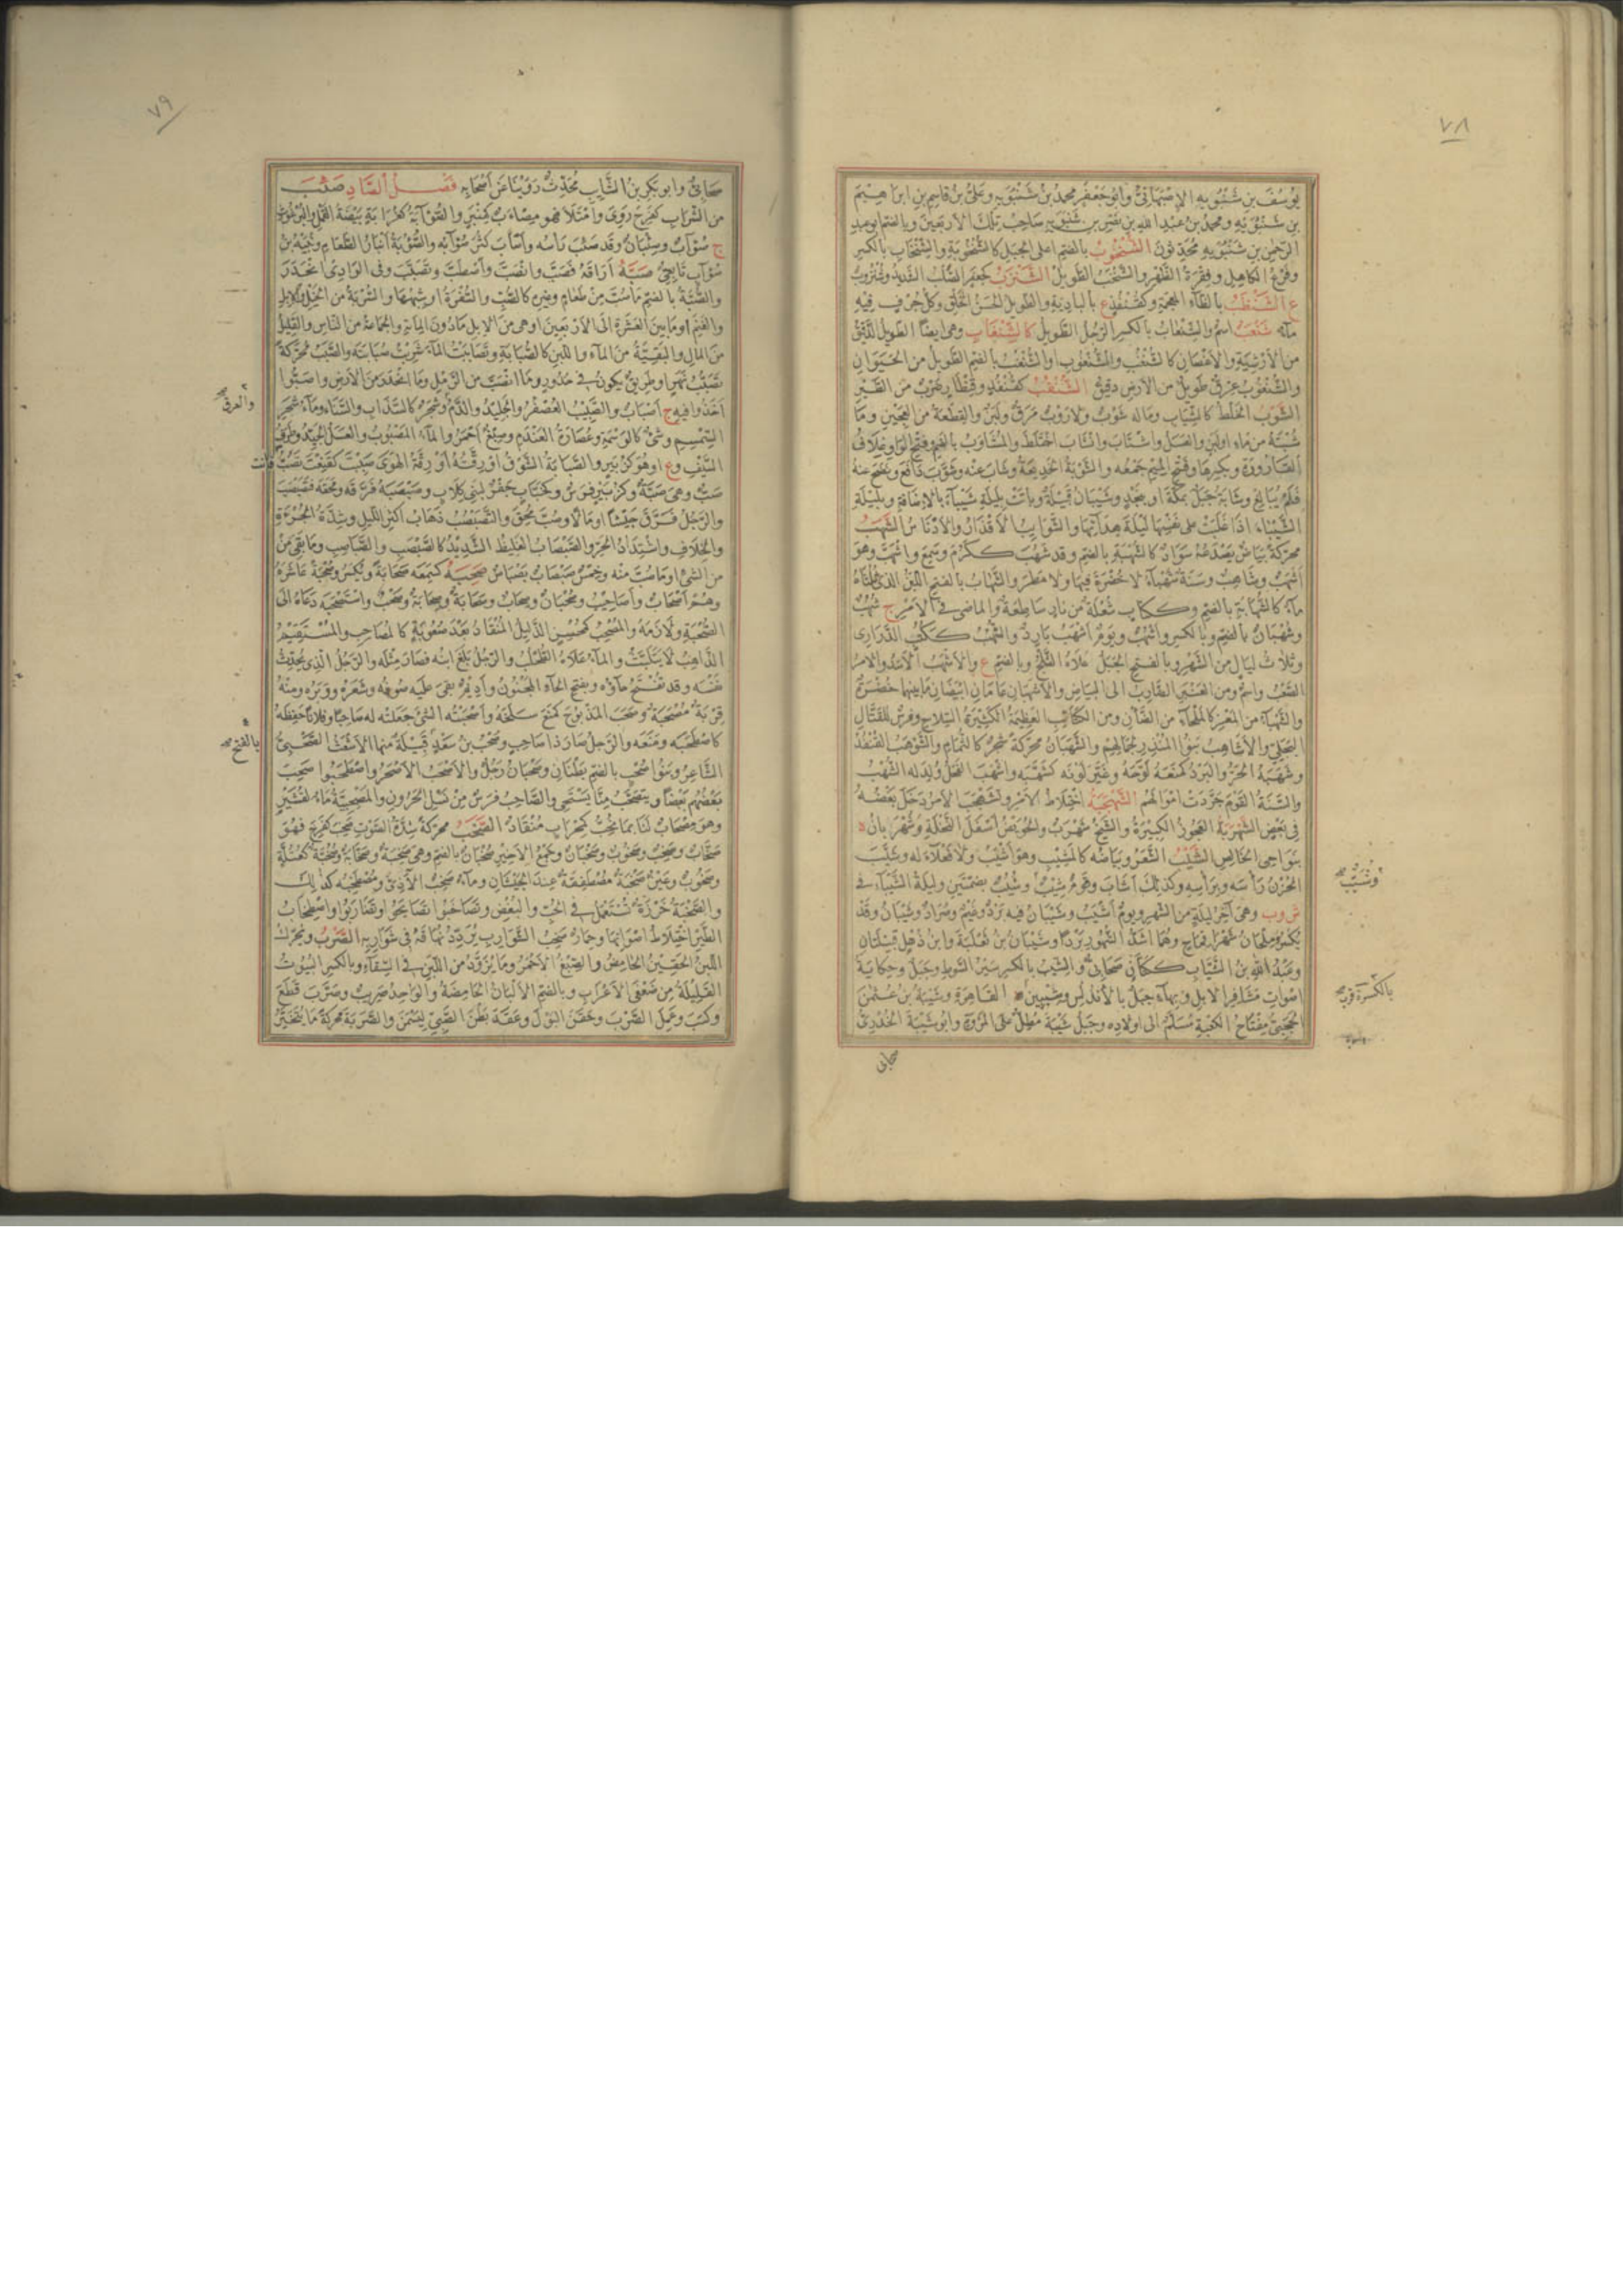 ٧٨
يوسف بن شنبويه الاصبهاني وابو جعفر محمد بن شنبويه وعلي بن قاسم بن ابراهيم
بن شنبويه ومحمد بن عبد الله بن نصر بن شنبويه صاحب تلك الاربعين وبالضم ابو عبد
الرحمن بن شنبويه محدثون الشنخوب بالضم اعلى الجبل كالشنخوبة والشنخاب بالكسر
وفرع الكاهل وفقرة الظهر والشنخب الطويل الشنزب كجعفر الصلب الشديد وشنزوب
ع الشنظب بالظاء المعجمة وكقنفذ ع بالبادية والطويل الحسن الخلق وكل جرف فيه
ماء شنعب اسم والشنعاب بالكسر الرجل الطويل كالشنغاب وهو ايضا الطويل الدقيق
من الارشية والاغصان كالشنغب والشنغوب او الشنغب بالضم الطويل من الحيوان
والشنغوب عرق طويل من الارض دقيق الشنقب كقنفذ وقنطار ضرب من الطير
الشوب الخلط كالشياب وماله شوب ولا روب مرق ولبن والقطعة من العجين وما
شبته من ماء او لبن والعسل واشتاب وانشاب اختلط والمشاوب بالضم وفتح الواو غلاف
القارورة وبكسرها وفتح الميم جمعه والشوبة الخديعة وشاب عنه وشوب دافع ونضح عنه
فلم يبالغ وشابة جبل بمكة او بنجد وشيبان قبيلة وباتت بليلة شيباء بالاضافة وبليلة
الشيباء اذا غلبت على نفسها ليلة هدائها والشوايب الاقذار والادناس الشهب
محركة بياض يصدعه سواد كالشهبة بالضم وقد شهب ككرم وسمع واشهب وهو
اشهب وشاهب وسنة شهباء لا خضرة فيها ولا مطر والشهاب بالفتح اللبن الذي ثلثاه
ماء كالشهابة بالضم وككتاب شعلة من نار ساطعة والماضي في الامر ج شهب
وشهبان بالضم وبالكسر واشهب ويوم اشهب بارد والشهب ككتب الدراري
وثلاث ليال من الشهر وبالفتح الجبل علاه الثلج وبالضم ع والاشهب الاسد والامر
الصعب واسم ومن العنبر الضارب الى البياض والاشهبان عامان ابيضان ما بينهما خضرة
والشهباء من المعز كالملحاء من الضأن ومن الكتائب العظيمة الكثيرة السلاح وفرس للقتال
البجلي والاشاهب بنو المنذر لجمالهم والشهبان محركة شجر كالثمام والشوهب القنفذ
وشهبه الحر والبرد كمنعه لوحه وغير لونه كشهبه واشهب الفحل ولد له الشهب
والسنة القوم جردت اموالهم الشهجبة اختلاط الامر وتشهجب الامر دخل بعضه
في بعض الشهربة العجوز الكبيرة والشيخ شهرب والحويض اسفل النخلة وشهربان ة
بنواحي الخالص الشيب الشعر وبياضه كالمشيب وهو اشيب ولا فعلاء له وشيب
الحزن راسه وبراسه وكذلك اشاب وقوم شيب وشيب بضمتين وليلة الشيباء في
ش وب وهي آخر ليلة من الشهر ويوم اشيب وشيبان فيه برد وغيم وصراد وشيبان وقد
يكسر وملحان شهرا قماح وهما اشد الشهور بردا وشيبان بن ثعلبة وابن ذهل قبيلتان
وعبد الله بن الشياب ككتان صحابي والشيب بالكسر سير السوط وجبل وحكاية
اصوات مشافر الابل وبهاء جبل بالاندلس وشيبين ة القاهرة وشيبة بن عثمن
الحجبي مفتاح الكعبة مسلم الى اولاده وجبل شيبة مطل على المروة وابو شيبة الخدري
وشيب
بالكسر ة قرب
صحابي
٧٩
صحابي وابو بكر بن الشايب محدث روينا عن اصحابه فصل الصاد صئب
من الشراب كفرح روي وامتلأ فهو مصاب كمنبر والصؤابة كغرابة بيضة القمل والبرغوث
ج صؤاب وصئبان وقد صئب راسه واصاب كثر صؤابه والصؤبة انبار الطعام ونبيه بن
صؤاب تابعي صبه اراقه فصب وانصب واصطب وتصبب وفي الوادي انحدر
والصبة بالضم ما صب من طعام وغيره كالصب والسفرة او شبهها والسربة من الخيل والابل
والغنم او ما بين العشرة الى الاربعين او هي من الابل ما دون الماية والجماعة من الناس والقليل
من المال والبقية من الماء واللبن كالصبابة وتصاببت الماء شربت صبابته والصبب محركة
تصبب نهر او طريق يكون في حدور وما انصب من الرمل وما انحدر من الارض واصبوا
اخذوا فيه ج اصباب والصبيب العصفر والجليد والدم وشجر كالسذاب والسناء وماء شجر
السمسم وشيء كالوسمة وعصارة العندم وصبغ احمر والماء المصبوب والعسل الجيد وطرف
السيف وع او هو كزبير والصبابة الشوق او رقته او رقة الهوى صببت كقنعت تصب فانت
صب وهي صبة وكزبير فرس وكخباب جفر لبني كلاب وصبصبه فرقه ومحقه فتصبصب
والرجل فرق جيشا او مالا وصب محق والتصبصب ذهاب اكثر الليل وشدة الجرءة
والخلاف واشتداد الحر والصبصاب الغليظ الشديد كالصبصب والصباصب وما بقي من
من الشيء او ما صب منه وخمس صبصاب بصباص صحبه كسمعه صحابة ويكسر وصحبة عاشره
وهم اصحاب واصاحيب وصحبان وصحاب وصحابة وصحابة وصحب واستصحبه دعاه الى
الصحبة ولازمه والمصحب كمحسن الذليل المنقاد بعد صعوبة كالمصاحب والمستقيم
الذاهب لا يتلبث والماء علاه الطحلب والرجل بلغ ابنه فصار مثله والرجل الذي يحدث
نفسه وقد تفتح حاؤه وبفتح الحاء المجنون واديم بقي عليه صوفه وشعره ووبره ومنه
قربة مصحبة وصحب المذبوح كمنع سلخه واصحبته الشيء جعلته له صاحبا وفلانا حفظه
كاصطحبه ومنعه والرجل صار ذا صاحب وصحب بن سعد قبيلة منها الاشعث الصحبي
الشاعر وبنو صحب بالضم بطنان وصحبان رجل والاصحب الاصحر واصطحبوا صحب
بعضهم بعضا ويتصحب منا يستحي والصاحب فرس من نسل الحرون والمصحبية ماء لقشير
وهو مصحاب لنا بما نحب كمحراب منقاد الصخب محركة شدة الصوت صخب كفرح فهو
صخاب وصخب وصخوب وصخبان وجمع الاخير صخبان بالضم وهي صخبة وصخابة وصخبة كعتلة
وصخوب وعين صخبة مصطفقة عند الجيشان وماء صخب الآذي ومصطخبه كذلك
والصخبة خرزة تستعمل في الحب والبغض وتصاخبوا تصايحوا وتضاربوا واصطخاب
الطير اختلاط اصواتها وحمار صخب الشوارب يردد نهاقه في شواربه الصرب ويحرك
اللبن الحقين الحامض والصبغ الاحمر وما يزود من اللبن في السقاء وبالكسر البيوت
القليلة من ضعفى الاعراب وبالضم الالبان الحامضة والواحد صريب وصرب قطع
وكسب وعمل الصرب وحقن البول وعقد بطن الصبي ليسمن والصربة محركة ما يتخير
والعرق
بالفتح